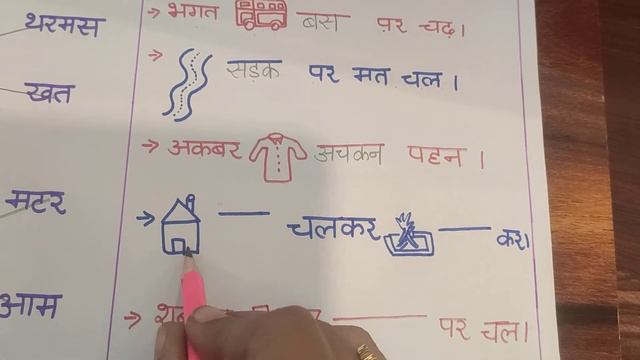 थरमस
खत
मटर
आम
→ भगत बस पर चढ़।
→ सड़क पर मत चल।
→ अकबर अचकन पहन।
→ ____ चलकर ____ कर।
→ ____ पर चल।